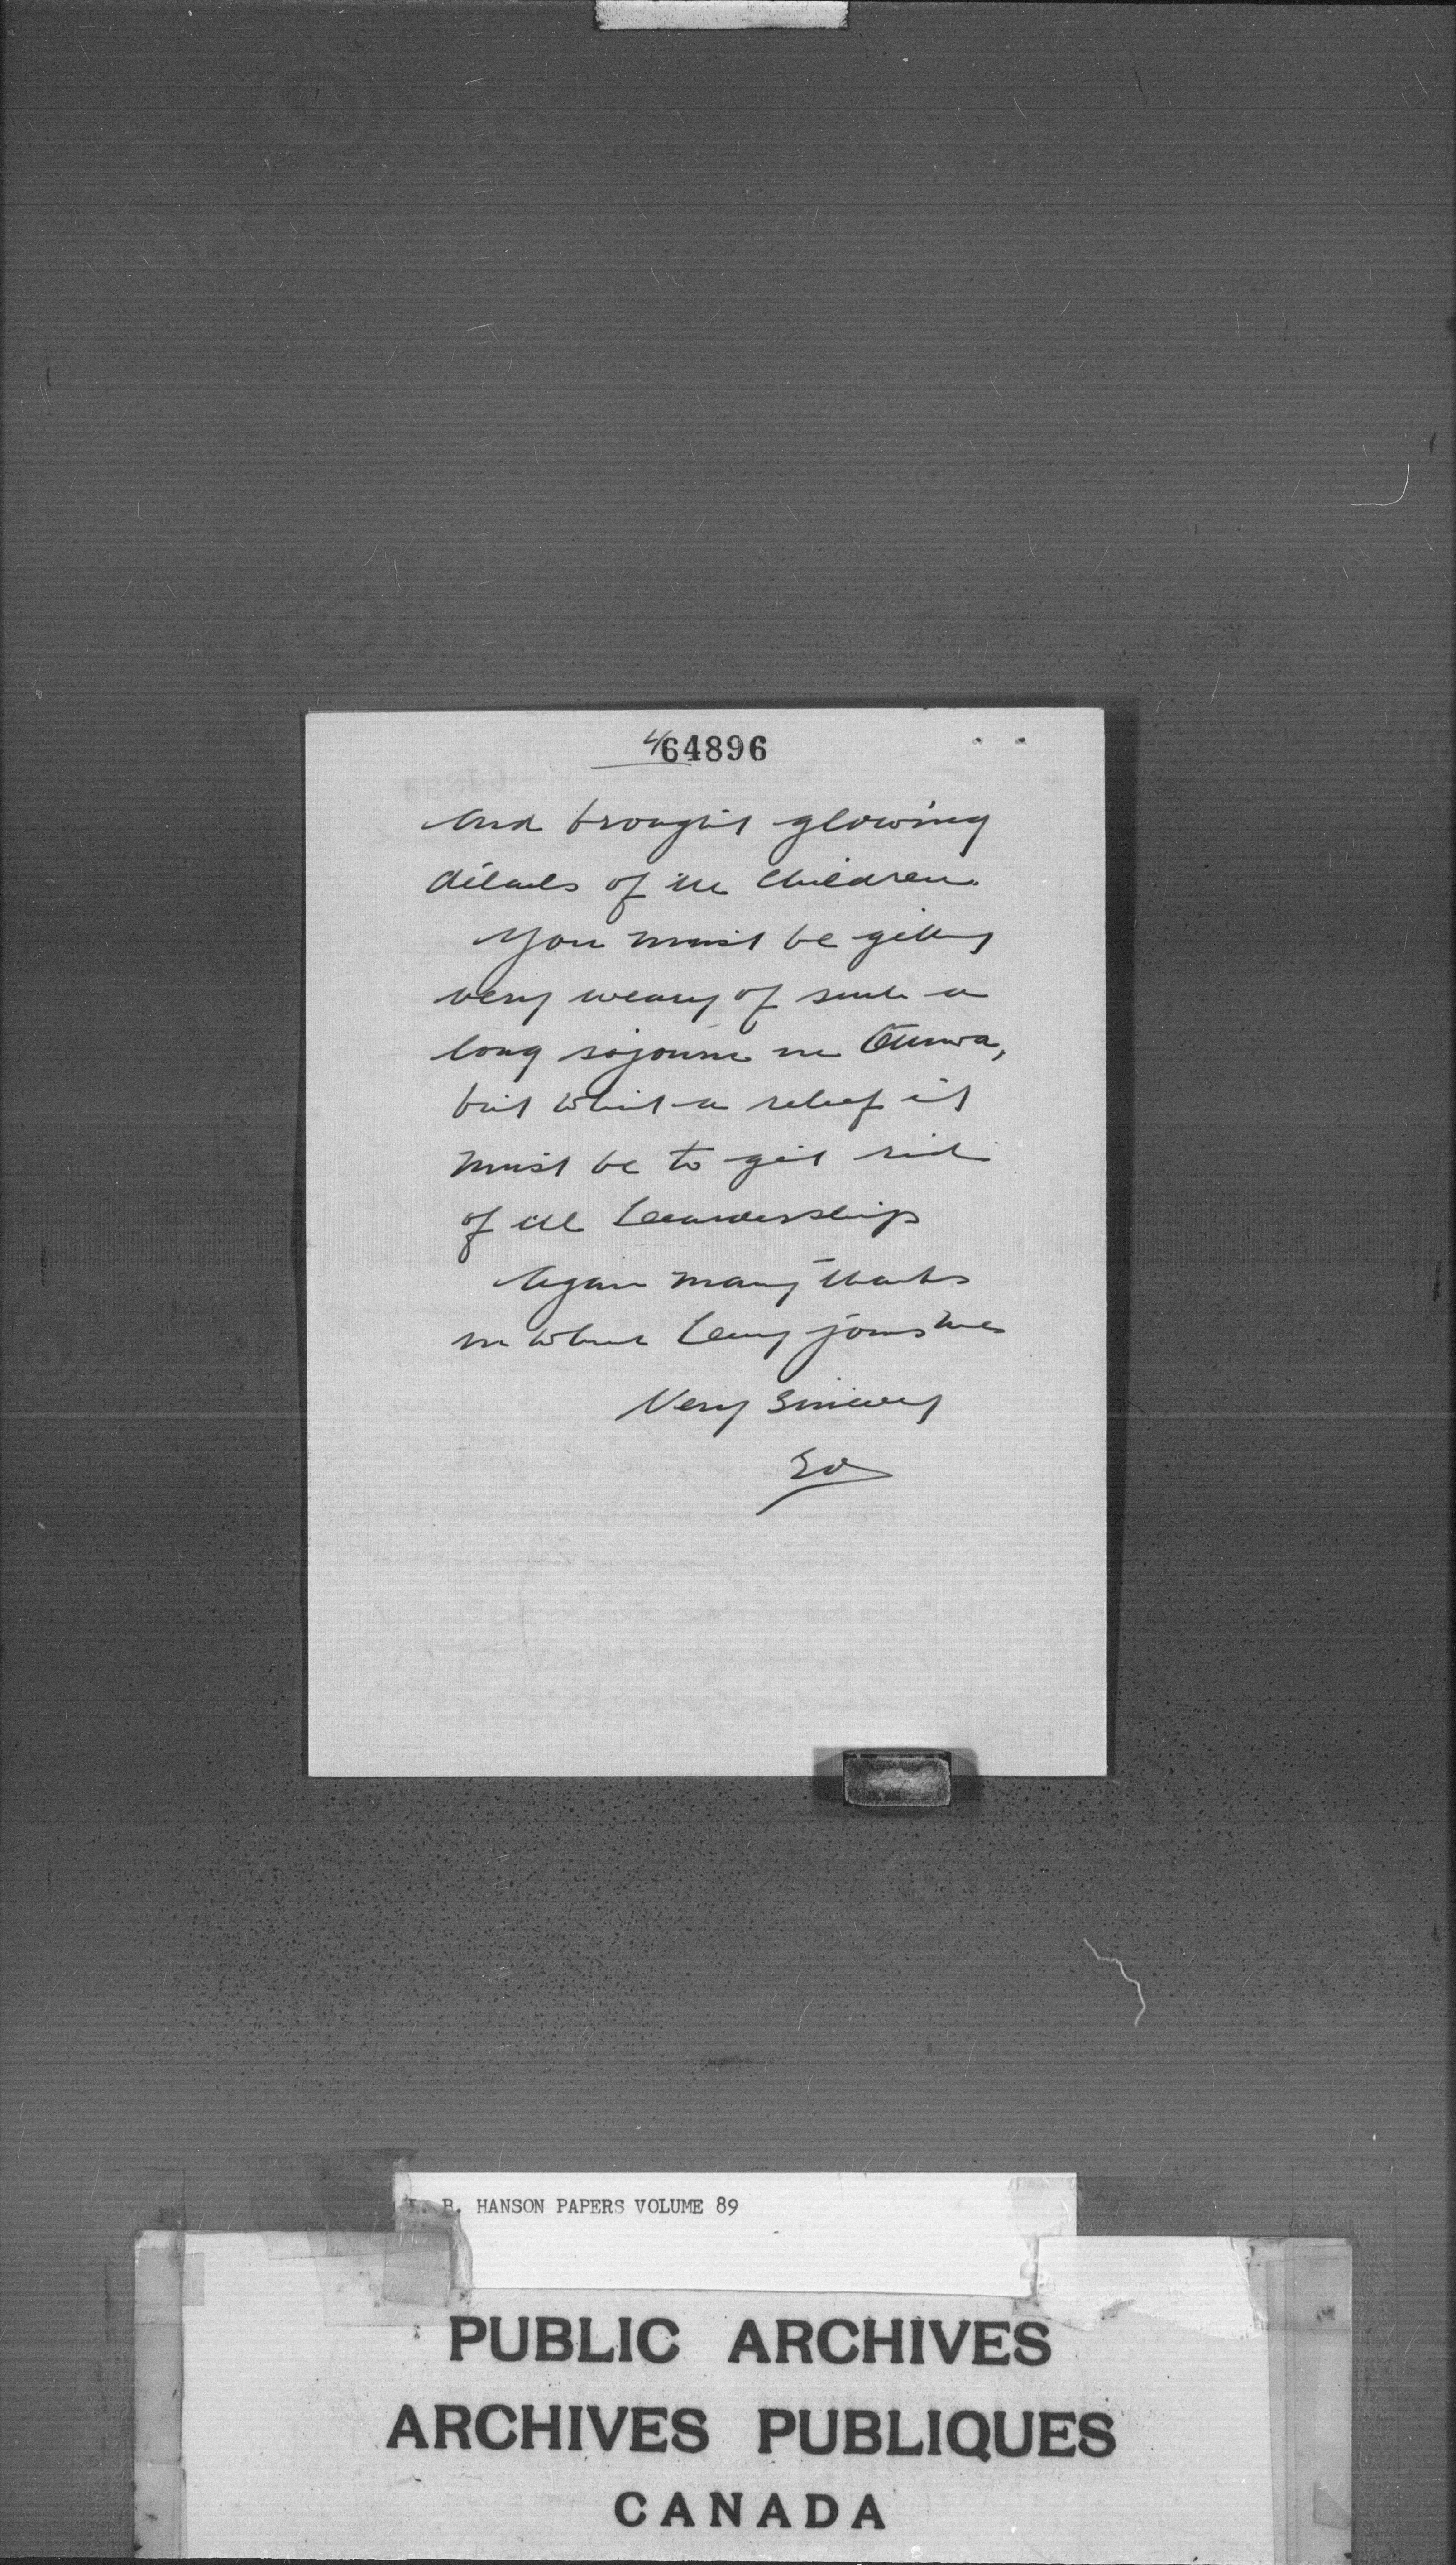 4/
64896
and brought glowing
details of the children.
You must be getting
very weary of such a
long sojourn in Ottawa,
but what a relief it
must be to get rid
of the Leadership
Again many thanks
in which joins me
Very Sincerely
Ed
R. B. HANSON PAPERS VOLUME 89
PUBLIC ARCHIVES
ARCHIVES PUBLIQUES
CANADA